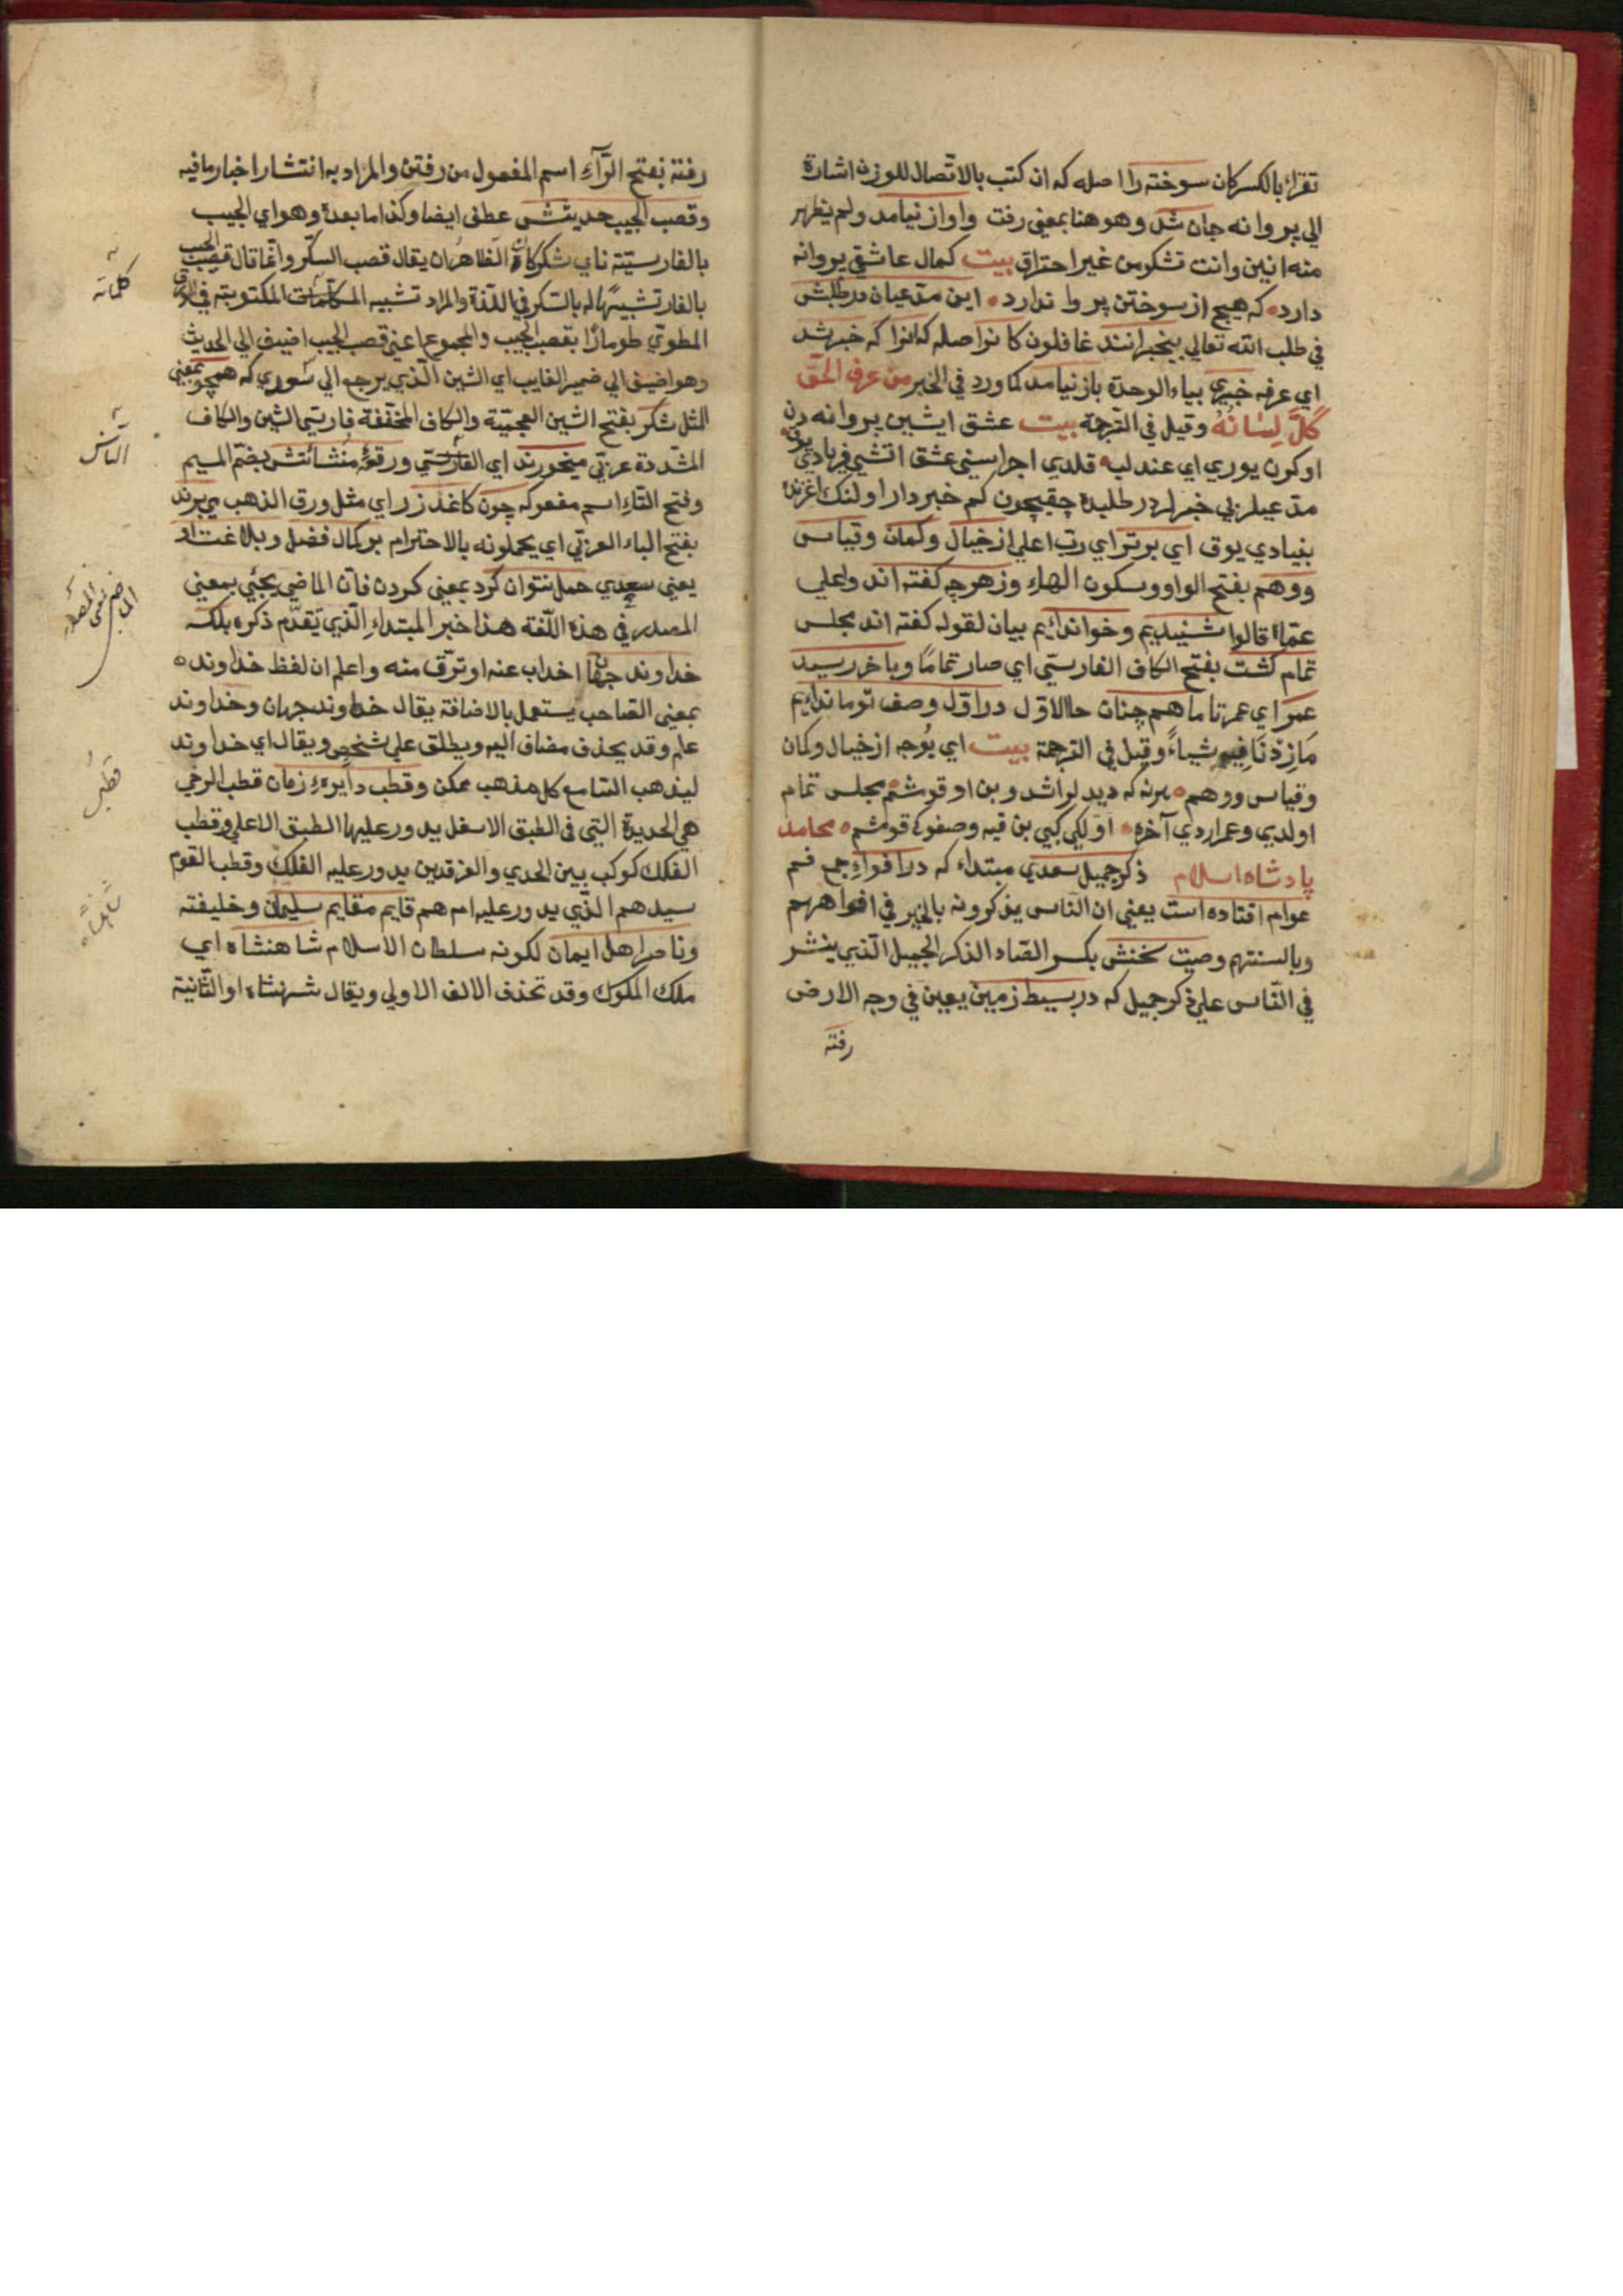 تقرأ بالكسر كان سوخته را اصله كه ان كتب بالاتصال للوزن اشارة
الي پروانه جان شد وهو هنا بمعنى رفت واواز نيامد ولم يظهر
منه انين وانت تشكو من غير احتراق بيت كمال عاشقي پروانه
دارد كه هيچ از سوختن پروا ندارد اين مدعيان در طلبش
في طلب الله تعالي بيخبرانند غافلون كانرا اصله كه انرا كه خبر شد
اي عرفه خبري بياء الوحدة باز نيامد كما ورد في الخبر من عرف الحق
كلّ لسانُهُ وقيل في الترجمة بيت عشق ايشين پروانه دن
اوكرن يوري اي عندليب قلدي اجرا سني عشق اتشي فريادي يوق
مدعيلر بي خبرلر در طلبده چقيچون كم خبردار اولنك
بنيادي يوق اي برتر اي رب اعلي از خيال وكمان وقياس
ووهم بفتح الواو وسكون الهاء وزهرچه كفته اند واعلي
عمّا قالوا شنيديم وخوانده ايم بيان لقوله كفته اند مجلس
تمام كشت بفتح الكاف الفارسيّ اي صار تمامًا وباخر رسيد
عمر اي عمرنا ما همچنان حالا اول در اوّل وصف تو مانده ايم
مازدنا فيه شياءً وقيل في الترجمة بيت اي يوجه از خيال وكمان
وقياس ووهم هرنه كه ديديلر اشدوبن اوقومشم مجلس تمام
اولدي وعمر اردي آخره اوّلكي كبي بن قيه وصفوكده قومشم محامد
پادشاه اسلام ذكر جميل سعدي مبتداء كه در افواه جمع فم
عوام افتاده است يعني ان الناس يذكرونه بالخير في افواههم
وبالسنتهم وصيت سخنش بكسر الصاد الذكر الجميل الذي ينشر
في الناس علي ذكر جميل كه در بسيط زمين يعني في وجه الارض
رفته
رفته بفتح الرّآءِ اسم المفعول من رفتن والمراد به انتشار اخبار ما فيه
وقصب الجيب حديثش عطف ايضا وكذا ما بعده وهو اي الجيب
بالفارسيّة ناي شكر كان الظاهر ان يقال قصب السكّر وانّما قال قصب الجيب
بالفار تشبيهًا له بالسكر في اللذة والمراد تشبيه الكلمات المكتوبته في الورق
المطويّ طومارًا بقصب الجيب والمجموع اعني قصب الجيب اضيف الي الحديث
وهو اضيف الي ضمير الغايب اي الشين الّذي يرجع الي سعدي كه همچو بمعني
المثل شكر بفتح الشين العجميّة والكاف المخفّفة فارسيّ الشين والكاف
المشدّدة عربيّ ميخورند اي الفارسيّ ورقعهٔ منشآتش بضمّ الميم
وفتح التاءِ اسم مفعول كه چون كاغذ زر اي مثل ورق الذهب ميبرند
بفتح الباء العربيّ اي يحملونه بالاحترام بر كمال فضل وبلاغت او
يعني سعدي حمل نتوان كرد بمعني كردن فانّ الماضي يجئ بمعني
المصدر في هذه اللّغة هذا خبر المبتداءِ الّذي تقدّم ذكره بلكه
خداوند جهان اضراب عنه او ترقّ منه واعلم ان لفظ خداونده
بمعني الصاحب يستعمل بالاضافة يقال خداوند جهان وخداوند
علم وقد يحذف مضاف اليه ويطلق علي شخص ويقال اي خداوند
ليذهب السامع كل مذهب ممكن وقطب دايرهٔ زمان قطب الرحي
هي الحديدة التي في الطبق الاسفل يدور عليها الطبق الاعلي وقطب
الفلك كوكب بين الجدي والفرقدين يدور عليه الفلك وقطب القوم
سيدهم الذي يدور عليه امرهم قايم مقايم سليمان وخليفته
وناصر اهل ايمان لكونه سلطان الاسلام شاهنشاه اي
ملك الملوك وقد تحذف الالف الاولي ويقال شهنشاه او الثّانية
كلماته
قطب